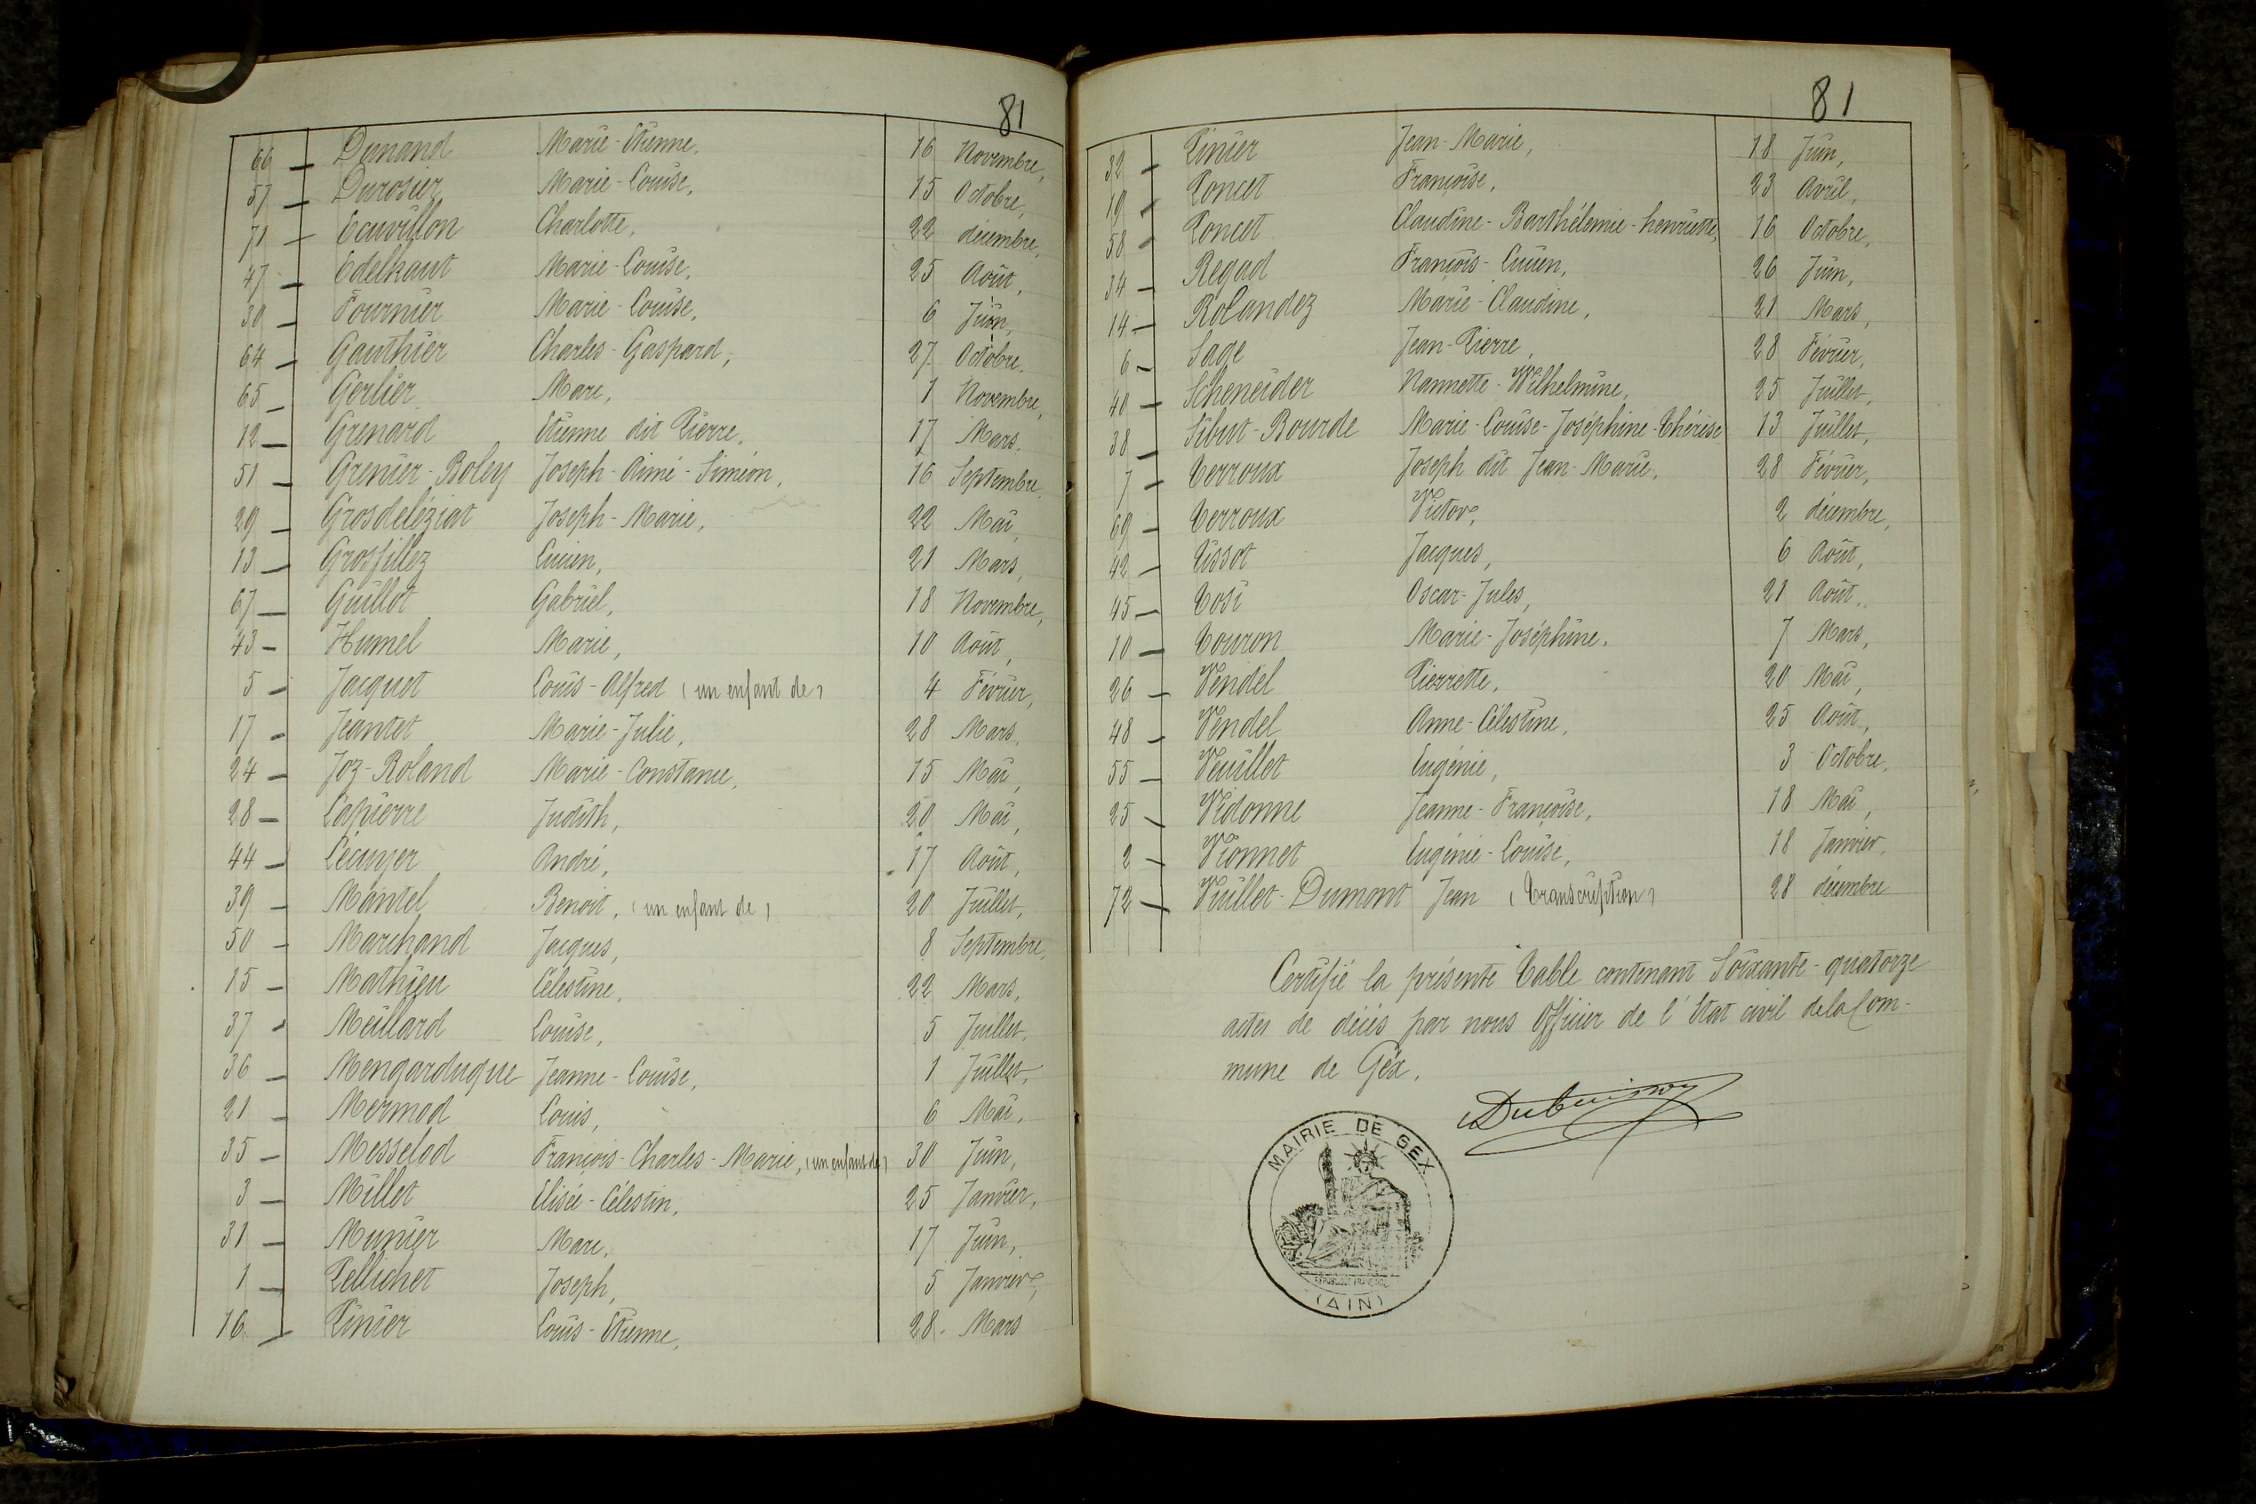 81
66 — Dunand Marie-Etienne. 16 Novembre,
57 — Durosier Marie-Louise, 15 Octobre,
71 — Ecuvillon Charlotte, 22 décembre,
47 — Edelkaut Marie-Louise, 25 Août,
30 — Fournier Marie-Louise, 6 Juin,
64 — Gauthier Charles-Gaspard, 27 Octobre.
65 — Gerlier Marc, 1 Novembre,
12 — Grenard Etienne dit Pierre, 17 Mars.
51 — Grenier-Boley Joseph-Aimé-Siméon, 16 Septembre,
29 — Grosdeléziat Joseph-Marie, 22 Mai,
13 — Grosfillez Lucien, 21 Mars,
67 — Guillot Gabriel, 18 Novembre,
43 — Humel Marie, 10 Août,
5 — Jacquet Louis-Alfred (un enfant de) 4 Février,
17 — Jeantet Marie-Julie, 28 Mars.
24 — Joz-Roland Marie-Constance, 15 Mai,
28 — Lapierre Judith, 20 Mai,
44 — Lécuyer André, 17 Août,
39 — Mantel Benoit, (un enfant de) 20 Juillet,
50 — Marchand Jacques, 8 Septembre,
15 — Mathieu Célestine, 22 Mars,
37 — Meillard Louise, 5 Juillet,
36 — Mengarduque Jeanne-Louise, 1 Juillet,
21 — Mermod Louis, 6 Mai,
35 — Messelod François-Charles-Marie, (un enfant de) 30 Juin,
3 — Millet Elisée-Célestin, 25 Janvier,
31 — Munier Marc, 17 Juin,
1 — Pellichet Joseph, 5 Janvier,
16 — Pinier Louis-Etienne, 28 Mars
81
32 — Pinier Jean-Marie, 18 Juin,
19 — Poncet Françoise, 23 Avril,
58 — Poncet Claudine-Barthélemie-henriette, 16 Octobre,
34 — Regad François-Lucien, 26 Juin,
14 — Rolandez Marie-Claudine, 21 Mars,
6 — Sage Jean-Pierre, 28 Février,
40 — Scheneider Nannette-Wilhelmine, 25 Juillet,
38 — Sibut-Bourde Marie-Louise-Joséphine-Thérèse 13 Juillet,
7 — Terroux Joseph dit Jean-Marie. 28 Février,
69 — Terroux Victor, 2 décembre,
42 — Tissot Jacques, 6 Août,
45 — Tosi Oscar-Jules, 21 Août,
10 — Touron Marie-Joséphine, 7 Mars,
26 — Vendel Pierrette, 20 Mai,
48 — Vendel Anne-Célestine, 25 Août,
55 — Veuillet Eugénie, 3 Octobre,
25 — Vidonne Jeanne-Françoise, 18 Mai,
2 — Vionnet Eugénie-Louise, 18 Janvier,
72 — Vuillet-Dumont Jean (Transcription) 28 décembre
Certifié la présente Table contenant Soixante-quatorze
actes de décès par nous Officier de l'Etat civil de la Com-
mune de Gex.
MAIRIE DE GEX
(AIN)